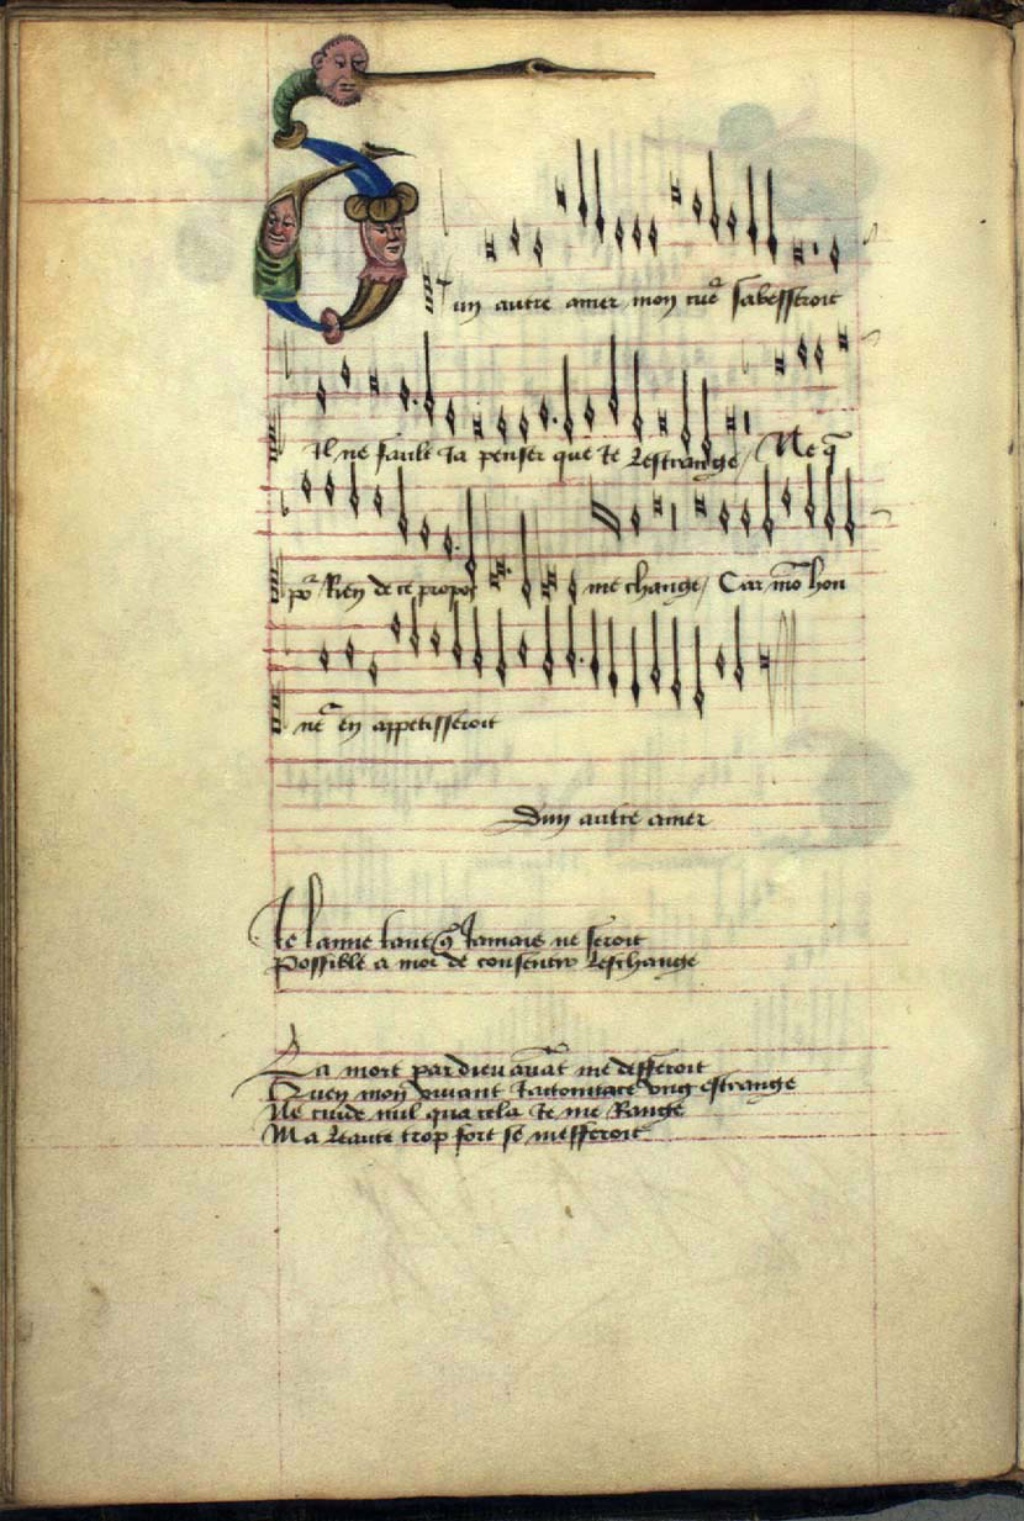 Dun autre amer mon cuer sabesseroit
Il ne fault Ja penser que Je Lestrange / Ne q̄
por Rien de ce propos me change / Car mō hon
neᵣ en appetisseroit
Dun autre amer
Je lamme tant q̄ Jamais ne seroit
Possible a moi de consentir Leschange
La mort par dieu avāt me defferoit
Quen mon vivant Jacointace ung estrange
Ne cuide nul qua cela Je me Range
Ma Leaute trop fort se mesferoit